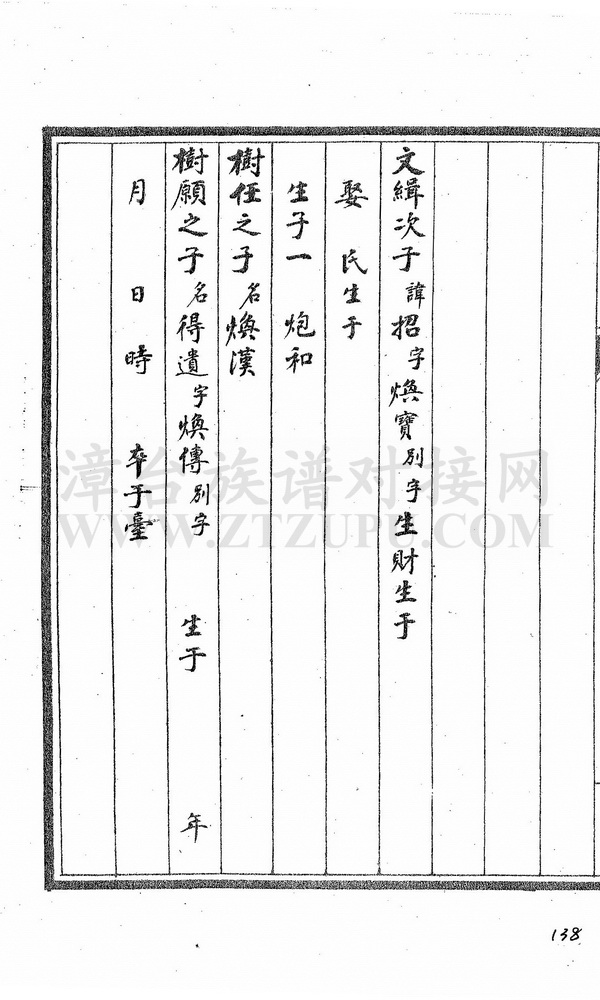 文緝次子諱招字煥寶別字生財生于
娶 氏生于
生子一 炮和
樹任之子名煥漢
樹願之子名得遺字煥傳別字 生于 年
月 日 時 卒于臺
漳台族谱对接网
WWW.ZTZUPU.COM
138